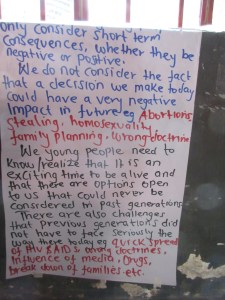 only consider short term
consequences, whether they be
negative or positive.
We do not consider the fact
that a decision we make today
could have a very negative
impact in future eg Abortions,
stealing, homosexuality,
family planning, Wrong doctrine
We young people need to
know/realize that it is an
exciting time to be alive and
that there are options open
to us that could never be
considered in past generations
There are also challenges
that previous generations did
not have to face seriously the
way there today eg quick spread
of HIV & AIDS, doctrines,
Influence of media, Drugs,
break down of families.etc.